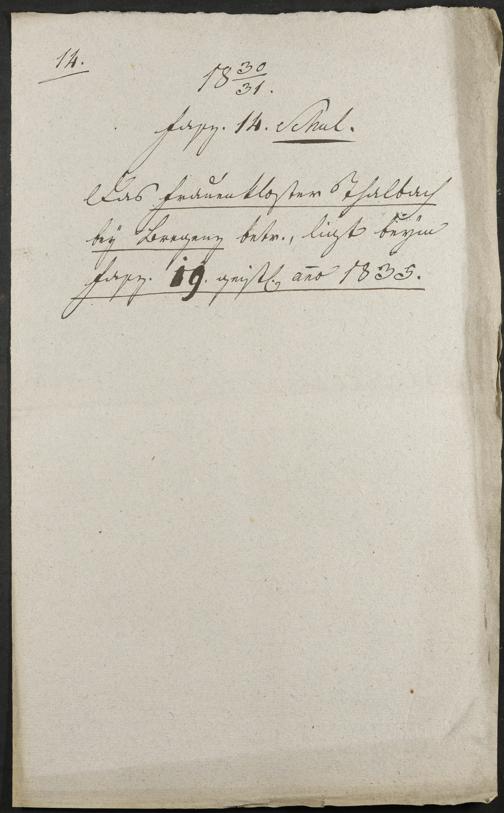 14.
18 30/31.
fasz. 14. Schul.
Das Frauenkloster Thalbach
beÿ Bregenz betr., liegt beÿm
fasz. 19. geistl. año 1835.